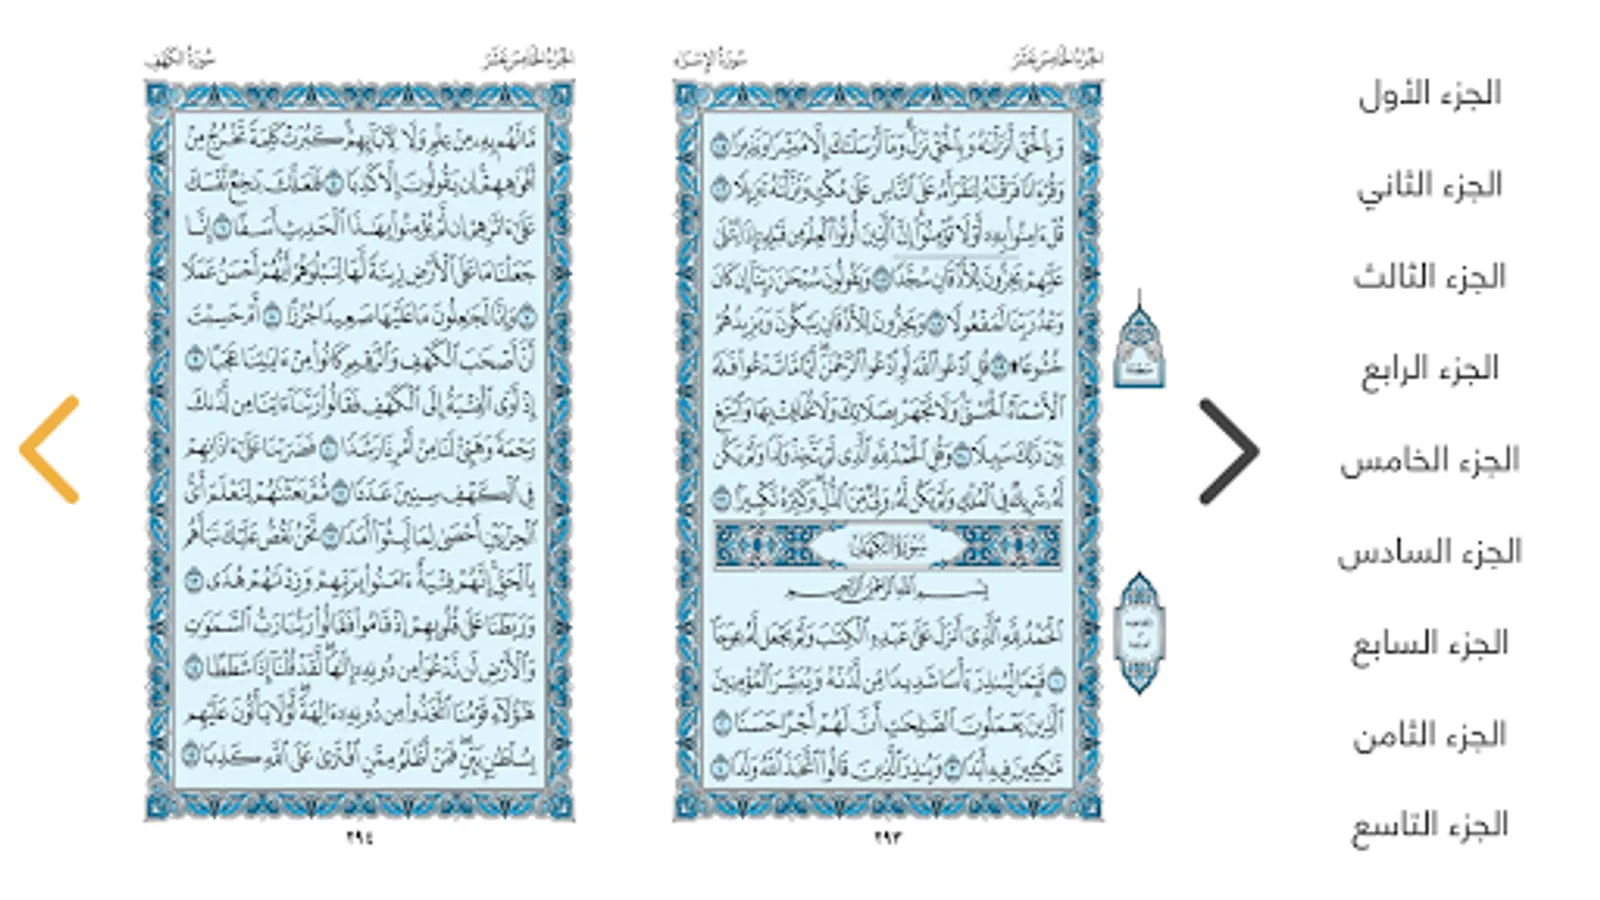 الجزء الأول
الجزء الثاني
الجزء الثالث
الجزء الرابع
الجزء الخامس
الجزء السادس
الجزء السابع
الجزء الثامن
الجزء التاسع
الجُزءُ الخَامِسَ عَشَرَ سُورَةُ الإِسْرَاء
وَبِٱلْحَقِّ أَنزَلْنَٰهُ وَبِٱلْحَقِّ نَزَلَ وَمَآ أَرْسَلْنَٰكَ إِلَّا مُبَشِّرًا وَنَذِيرًا ١٠٥
وَقُرْءَانًا فَرَقْنَٰهُ لِتَقْرَأَهُۥ عَلَى ٱلنَّاسِ عَلَىٰ مُكْثٍ وَنَزَّلْنَٰهُ تَنزِيلًا ١٠٦
قُلْ ءَامِنُوا۟ بِهِۦٓ أَوْ لَا تُؤْمِنُوٓا۟ إِنَّ ٱلَّذِينَ أُوتُوا۟ ٱلْعِلْمَ مِن قَبْلِهِۦٓ إِذَا يُتْلَىٰ
عَلَيْهِمْ يَخِرُّونَ لِلْأَذْقَانِ سُجَّدًا ١٠٧ وَيَقُولُونَ سُبْحَٰنَ رَبِّنَآ إِن كَانَ
وَعْدُ رَبِّنَا لَمَفْعُولًا ١٠٨ وَيَخِرُّونَ لِلْأَذْقَانِ يَبْكُونَ وَيَزِيدُهُمْ
خُشُوعًا ۩ ١٠٩ قُلِ ٱدْعُوا۟ ٱللَّهَ أَوِ ٱدْعُوا۟ ٱلرَّحْمَٰنَ أَيًّا مَّا تَدْعُوا۟ فَلَهُ
ٱلْأَسْمَآءُ ٱلْحُسْنَىٰ وَلَا تَجْهَرْ بِصَلَاتِكَ وَلَا تُخَافِتْ بِهَا وَٱبْتَغِ
بَيْنَ ذَٰلِكَ سَبِيلًا ١١٠ وَقُلِ ٱلْحَمْدُ لِلَّهِ ٱلَّذِى لَمْ يَتَّخِذْ وَلَدًا وَلَمْ يَكُن
لَّهُۥ شَرِيكٌ فِى ٱلْمُلْكِ وَلَمْ يَكُن لَّهُۥ وَلِىٌّ مِّنَ ٱلذُّلِّ وَكَبِّرْهُ تَكْبِيرًۢا ١١١
سُورَةُ الكَهْفِ
بِسْمِ ٱللَّهِ ٱلرَّحْمَٰنِ ٱلرَّحِيمِ
ٱلْحَمْدُ لِلَّهِ ٱلَّذِىٓ أَنزَلَ عَلَىٰ عَبْدِهِ ٱلْكِتَٰبَ وَلَمْ يَجْعَل لَّهُۥ عِوَجَاۜ
١ قَيِّمًا لِّيُنذِرَ بَأْسًا شَدِيدًا مِّن لَّدُنْهُ وَيُبَشِّرَ ٱلْمُؤْمِنِينَ
ٱلَّذِينَ يَعْمَلُونَ ٱلصَّٰلِحَٰتِ أَنَّ لَهُمْ أَجْرًا حَسَنًا ٢
مَّٰكِثِينَ فِيهِ أَبَدًا ٣ وَيُنذِرَ ٱلَّذِينَ قَالُوا۟ ٱتَّخَذَ ٱللَّهُ وَلَدًا ٤
٢٩٣
الجُزءُ الخَامِسَ عَشَرَ سُورَةُ الكَهْفِ
مَّا لَهُم بِهِۦ مِنْ عِلْمٍ وَلَا لِءَابَآئِهِمْ كَبُرَتْ كَلِمَةً تَخْرُجُ مِنْ
أَفْوَٰهِهِمْ إِن يَقُولُونَ إِلَّا كَذِبًا ٥ فَلَعَلَّكَ بَٰخِعٌ نَّفْسَكَ
عَلَىٰٓ ءَاثَٰرِهِمْ إِن لَّمْ يُؤْمِنُوا۟ بِهَٰذَا ٱلْحَدِيثِ أَسَفًا ٦ إِنَّا
جَعَلْنَا مَا عَلَى ٱلْأَرْضِ زِينَةً لَّهَا لِنَبْلُوَهُمْ أَيُّهُمْ أَحْسَنُ عَمَلًا
٧ وَإِنَّا لَجَٰعِلُونَ مَا عَلَيْهَا صَعِيدًا جُرُزًا ٨ أَمْ حَسِبْتَ
أَنَّ أَصْحَٰبَ ٱلْكَهْفِ وَٱلرَّقِيمِ كَانُوا۟ مِنْ ءَايَٰتِنَا عَجَبًا ٩
إِذْ أَوَى ٱلْفِتْيَةُ إِلَى ٱلْكَهْفِ فَقَالُوا۟ رَبَّنَآ ءَاتِنَا مِن لَّدُنكَ
رَحْمَةً وَهَيِّئْ لَنَا مِنْ أَمْرِنَا رَشَدًا ١٠ فَضَرَبْنَا عَلَىٰٓ ءَاذَانِهِمْ
فِى ٱلْكَهْفِ سِنِينَ عَدَدًا ١١ ثُمَّ بَعَثْنَٰهُمْ لِنَعْلَمَ أَىُّ
ٱلْحِزْبَيْنِ أَحْصَىٰ لِمَا لَبِثُوٓا۟ أَمَدًا ١٢ نَّحْنُ نَقُصُّ عَلَيْكَ نَبَأَهُم
بِٱلْحَقِّ إِنَّهُمْ فِتْيَةٌ ءَامَنُوا۟ بِرَبِّهِمْ وَزِدْنَٰهُمْ هُدًى ١٣
وَرَبَطْنَا عَلَىٰ قُلُوبِهِمْ إِذْ قَامُوا۟ فَقَالُوا۟ رَبُّنَا رَبُّ ٱلسَّمَٰوَٰتِ
وَٱلْأَرْضِ لَن نَّدْعُوَا۟ مِن دُونِهِۦٓ إِلَٰهًا لَّقَدْ قُلْنَآ إِذًا شَطَطًا ١٤
هَٰٓؤُلَآءِ قَوْمُنَا ٱتَّخَذُوا۟ مِن دُونِهِۦٓ ءَالِهَةً لَّوْلَا يَأْتُونَ عَلَيْهِم
بِسُلْطَٰنٍۭ بَيِّنٍ فَمَنْ أَظْلَمُ مِمَّنِ ٱفْتَرَىٰ عَلَى ٱللَّهِ كَذِبًا ١٥
٢٩٤